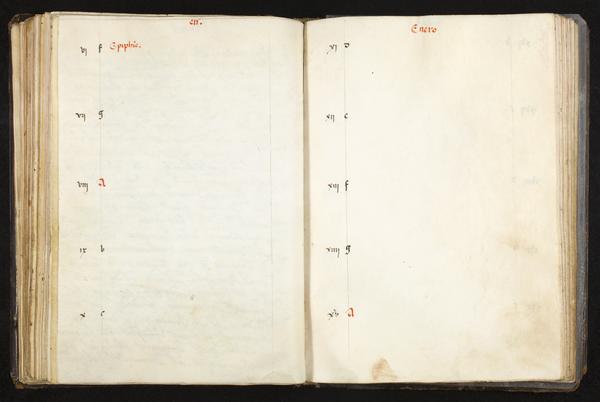 en.
vj f Epiphie.
vij g
viij A
ix b
x c
Enero
xj d
xij e
xiij f
xiiij g
xv A